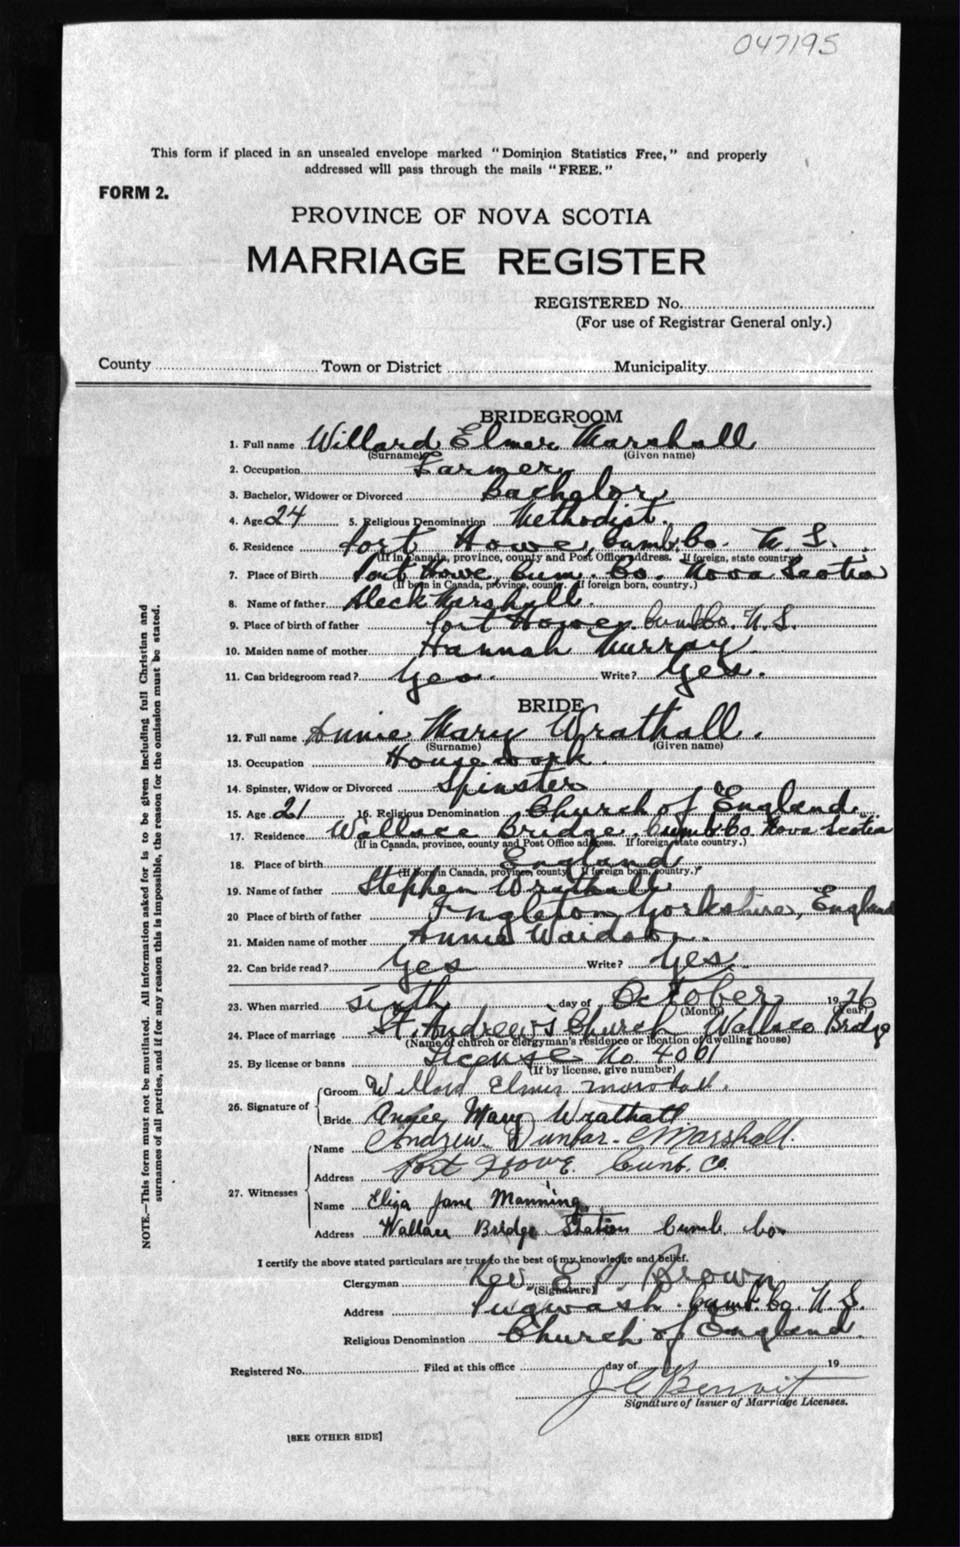 047195
This form if placed in an unsealed envelope marked "Dominion Statistics Free," and properly
addressed will pass through the mails "FREE."
FORM 2.
PROVINCE OF NOVA SCOTIA
MARRIAGE REGISTER
REGISTERED No.
(For use of Registrar General only.)
County Town or District Municipality
BRIDEGROOM
1. Full name Willard Elmer Marshall
(Surname) (Given name)
2. Occupation Farmer
3. Bachelor, Widower or Divorced Bachelor
4. Age 24 5. Religious Denomination Methodist.
6. Residence Port Howe, Cumb. Co. N. S.
(If in Canada, province, county and Post Office address. If foreign, state country.)
7. Place of Birth Port Howe, Cum. Co. Nova Scotia
(If born in Canada, province, county. If foreign born, country.)
8. Name of father Aleck Marshall.
9. Place of birth of father Port Howe, Cumb Co. N. S.
10. Maiden name of mother Hannah Murray.
11. Can bridegroom read? Yes. Write? Yes.
BRIDE
12. Full name Annie Mary Wrathall.
(Surname) (Given name)
13. Occupation Housework.
14. Spinster, Widow or Divorced Spinster
15. Age 21 16. Religious Denomination Church of England
17. Residence Wallace Bridge, Cumb Co Nova Scotia
(If in Canada, province, county and Post Office address. If foreign, state country.)
18. Place of birth England.
(If born in Canada, province, county. If foreign born, country.)
19. Name of father Stephen Wrathall
20 Place of birth of father Ingleton Yorkshire, England
21. Maiden name of mother Annie
22. Can bride read? Yes Write? Yes.
23. When married sixth day of October 1926
(Month) (Year)
24. Place of marriage St. Andrew's Church Wallace Bridge
(Name of church or clergyman's residence or location of dwelling house)
25. By license or banns License No. 4061
(If by license, give number)
26. Signature of Groom Willard Elmer Marshall.
Bride Annie Mary Wrathall
27. Witnesses Name Andrew Dunbar Marshall.
Address Port Howe. Cumb. Co.
Name Eliza Jane Manning
Address Wallace Bridge Station Cumb. Co
I certify the above stated particulars are true to the best of my knowledge and belief.
Clergyman Rev. E. J. Brown
(Signature)
Address Pugwash. Cumb. Co. N. S.
Religious Denomination Church of England.
Registered No. Filed at this office day of 19
J G Benoit
Signature of Issuer of Marriage Licenses.
[SEE OTHER SIDE]
NOTE.—This form must not be mutilated. All information asked for is to be given including full Christian and
surnames of all parties, and if for any reason this is impossible, the reason for the omission must be stated.